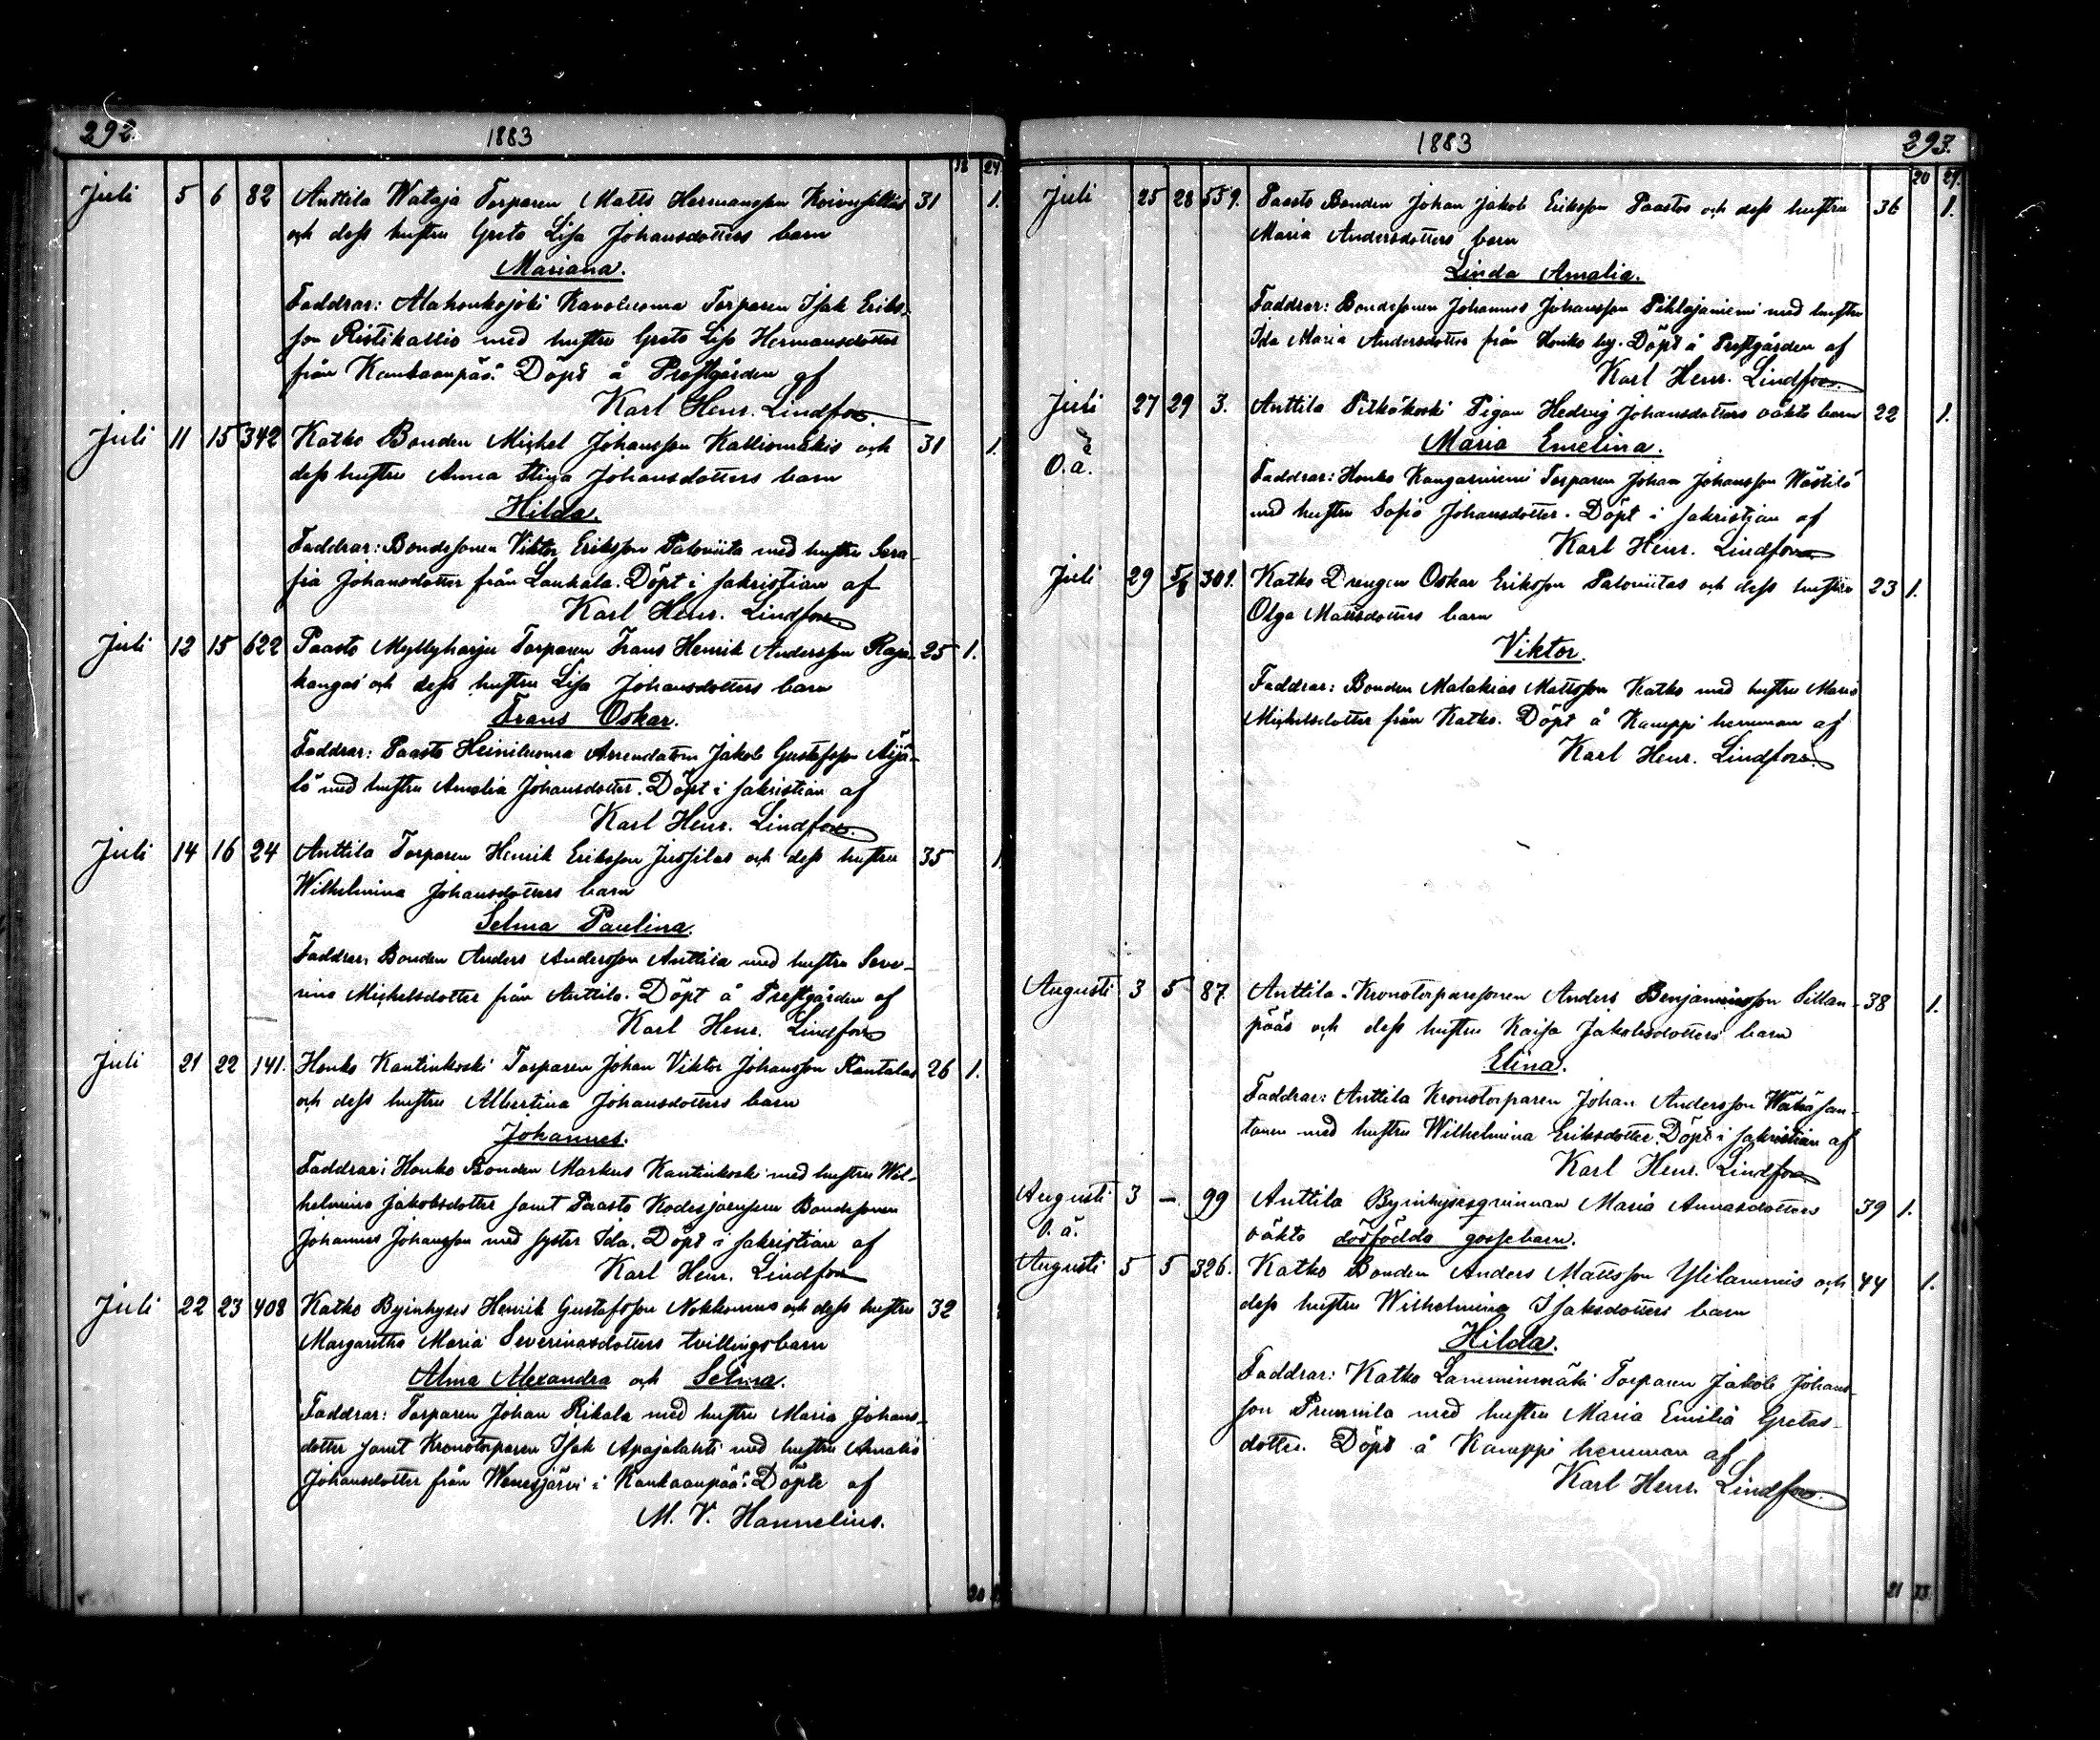 292. 1883
18 24
Juli 5 6 82 Anttila Wataja Torparen Matts Hermansson Koivusillas 31 1.
och dess hustru Greta Lisa Johansdotters barn
Mariana.
Faddrar: Alahonkajoki Karvoluoma Torparen Isak Eriks-
son Ristikallio med hustru Greta Lisa Hermansdotter
från Kankaanpää. Döpt å Prestgården af
Karl Henr. Lindfors.
Juli 11 15 342 Katko Bonden Michel Johansson Kalliomäkis och 31 1.
dess hustru Anna Stina Johansdotters barn
Hilda.
Faddrar: Bondesonen Viktor Eriksson Paloviita med hustru Sera-
fia Johansdotter från Laukala. Döpt i sakristian af
Karl Henr. Lindfors.
Juli 12 15 622 Paasto Myllyharju Torparen Frans Henrik Andersson Raja- 25 1.
kangas och dess hustru Lisa Johansdotters barn
Frans Oskar.
Faddrar: Paasto Heiniluoma Arrendatorn Jakob Gustafsson Äijä-
lä med hustru Amalia Johansdotter. Döpt i sakristian af
Karl Henr. Lindfors.
Juli 14 16 24 Anttila Torparen Henrik Eriksson Jussilas och dess hustru 35 1
Wilhelmina Johansdotters barn
Selma Paulina.
Faddrar: Bonden Anders Andersson Anttila med hustru Seve-
rina Michelsdotter från Anttila. Döpt å Prestgården af
Karl Henr. Lindfors
Juli 21 22 141. Honko Kantinkoski Torparen Johan Viktor Johansson Rantalas 26 1.
och dess hustru Albertina Johansdotters barn
Johannes.
Faddrar: Honko Bonden Markus Kantinkoski med hustru Wil-
helmina Jakobsdotter samt Paasto Kodesjärvi Bondesonen
Johannes Johansson med syster Ida. Döpt i sakristian af
Karl Henr. Lindfors
Juli 22 23 408 Katko Byinhyses Henrik Gustafsson Nokkonens och dess hustru 32
Margaretha Maria Severinasdotters tvillingsbarn
Alma Alexandra och Selma.
Faddrar: Torparen Johan Rikala med hustru Maria Johans-
dotter samt Kronotorparen Isak Apajalahti med hustru Amalia
Johansdotter från Wenesjärvi i Kankaanpää. Döpte af
M. V. Hannelius.
20
1883 293.
20 29.
Juli 25 28 559. Paasto Bonden Johan Jakob Eriksson Paastos och dess hustru 36 1.
Maria Andersdotters barn
Linda Amalia.
Faddrar: Bondesonen Johannes Johansson Pihlajaniemi med hustru
Ida Maria Andersdotter från Honko by. Döpt å Prestgården af
Karl Henr. Lindfors.
Juli 27 29 3. Anttila Pitkäkoski Pigan Hedvig Johansdotters oäkta barn 22 1.
Maria Emelina.
O.ä.
Faddrar: Honko Kangasniemi Torparen Johan Johansson Wästilä
med hustru Sofia Johansdotter. Döpt i sakristian af
Karl Henr. Lindfors
Juli 29 5/8 301. Katko Drengen Oskar Eriksson Paloviitas och dess hustru 23 1.
Olga Mattsdotters barn
Viktor.
Faddrar: Bonden Malakias Mattsson Katko med hustru Maria
Michelsdotter från Katko. Döpt å Kamppi hemman af
Karl Henr. Lindfors.
Augusti 3 5 87. Anttila Kronotorparesonen Anders Benjaminsson Sillan- 38 1.
pääs och dess hustru Kaisa Jakobsdotters barn
Elina.
Faddrar: Anttila Kronotorparen Johan Andersson Wähäsan-
tanen med hustru Wilhelmina Eriksdotter. Döpt i sakristian af
Karl Henr. Lindfors
Augusti 3 — 99 Anttila Byinhysesqvinnan Maria Annasdotters 39 1.
O.ä. oäkta dödfödda gossebarn.
Augusti 5 5 326. Katko Bonden Anders Mattsson Ylilammis och 44 1.
dess hustru Wilhelmina Isaksdotters barn
Hilda.
Faddrar: Katko Lamminmäki Torparen Jakob Johans-
son med hustru Maria Emilia Gretas-
dotter. Döpt å Kamppi hemman af
Karl Henr. Lindfors.
21 33